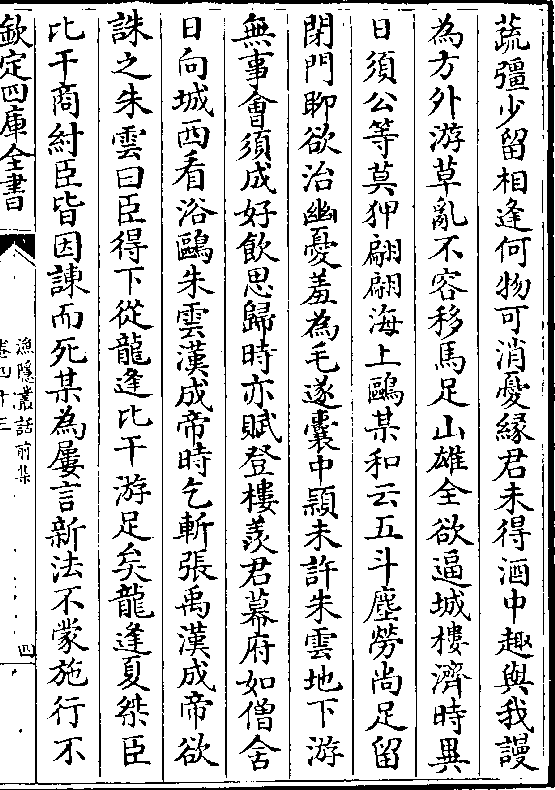 蔬彊少留相逢何物可消憂緣君未得酒中趣與我謾
為方外游草亂不容移馬足山雄全欲逼城樓濟時異
日須公等莫狎翩翩海上鷗某和云五斗塵勞尚足留
閉門聊欲治幽憂羞為毛遂囊中穎未許朱雲地下游
無事會須成好飲思歸時亦賦登樓羨君幕府如僧舍
日向城西看浴鷗朱雲漢成帝時乞斬張禹漢成帝欲
誅之朱雲曰臣得下從龍逢比干游足矣龍逢夏桀臣
比干商紂臣皆因諫而死某為屢言新法不蒙施行不
欽定四庫全書
漁隱叢話前集
卷四十三
四